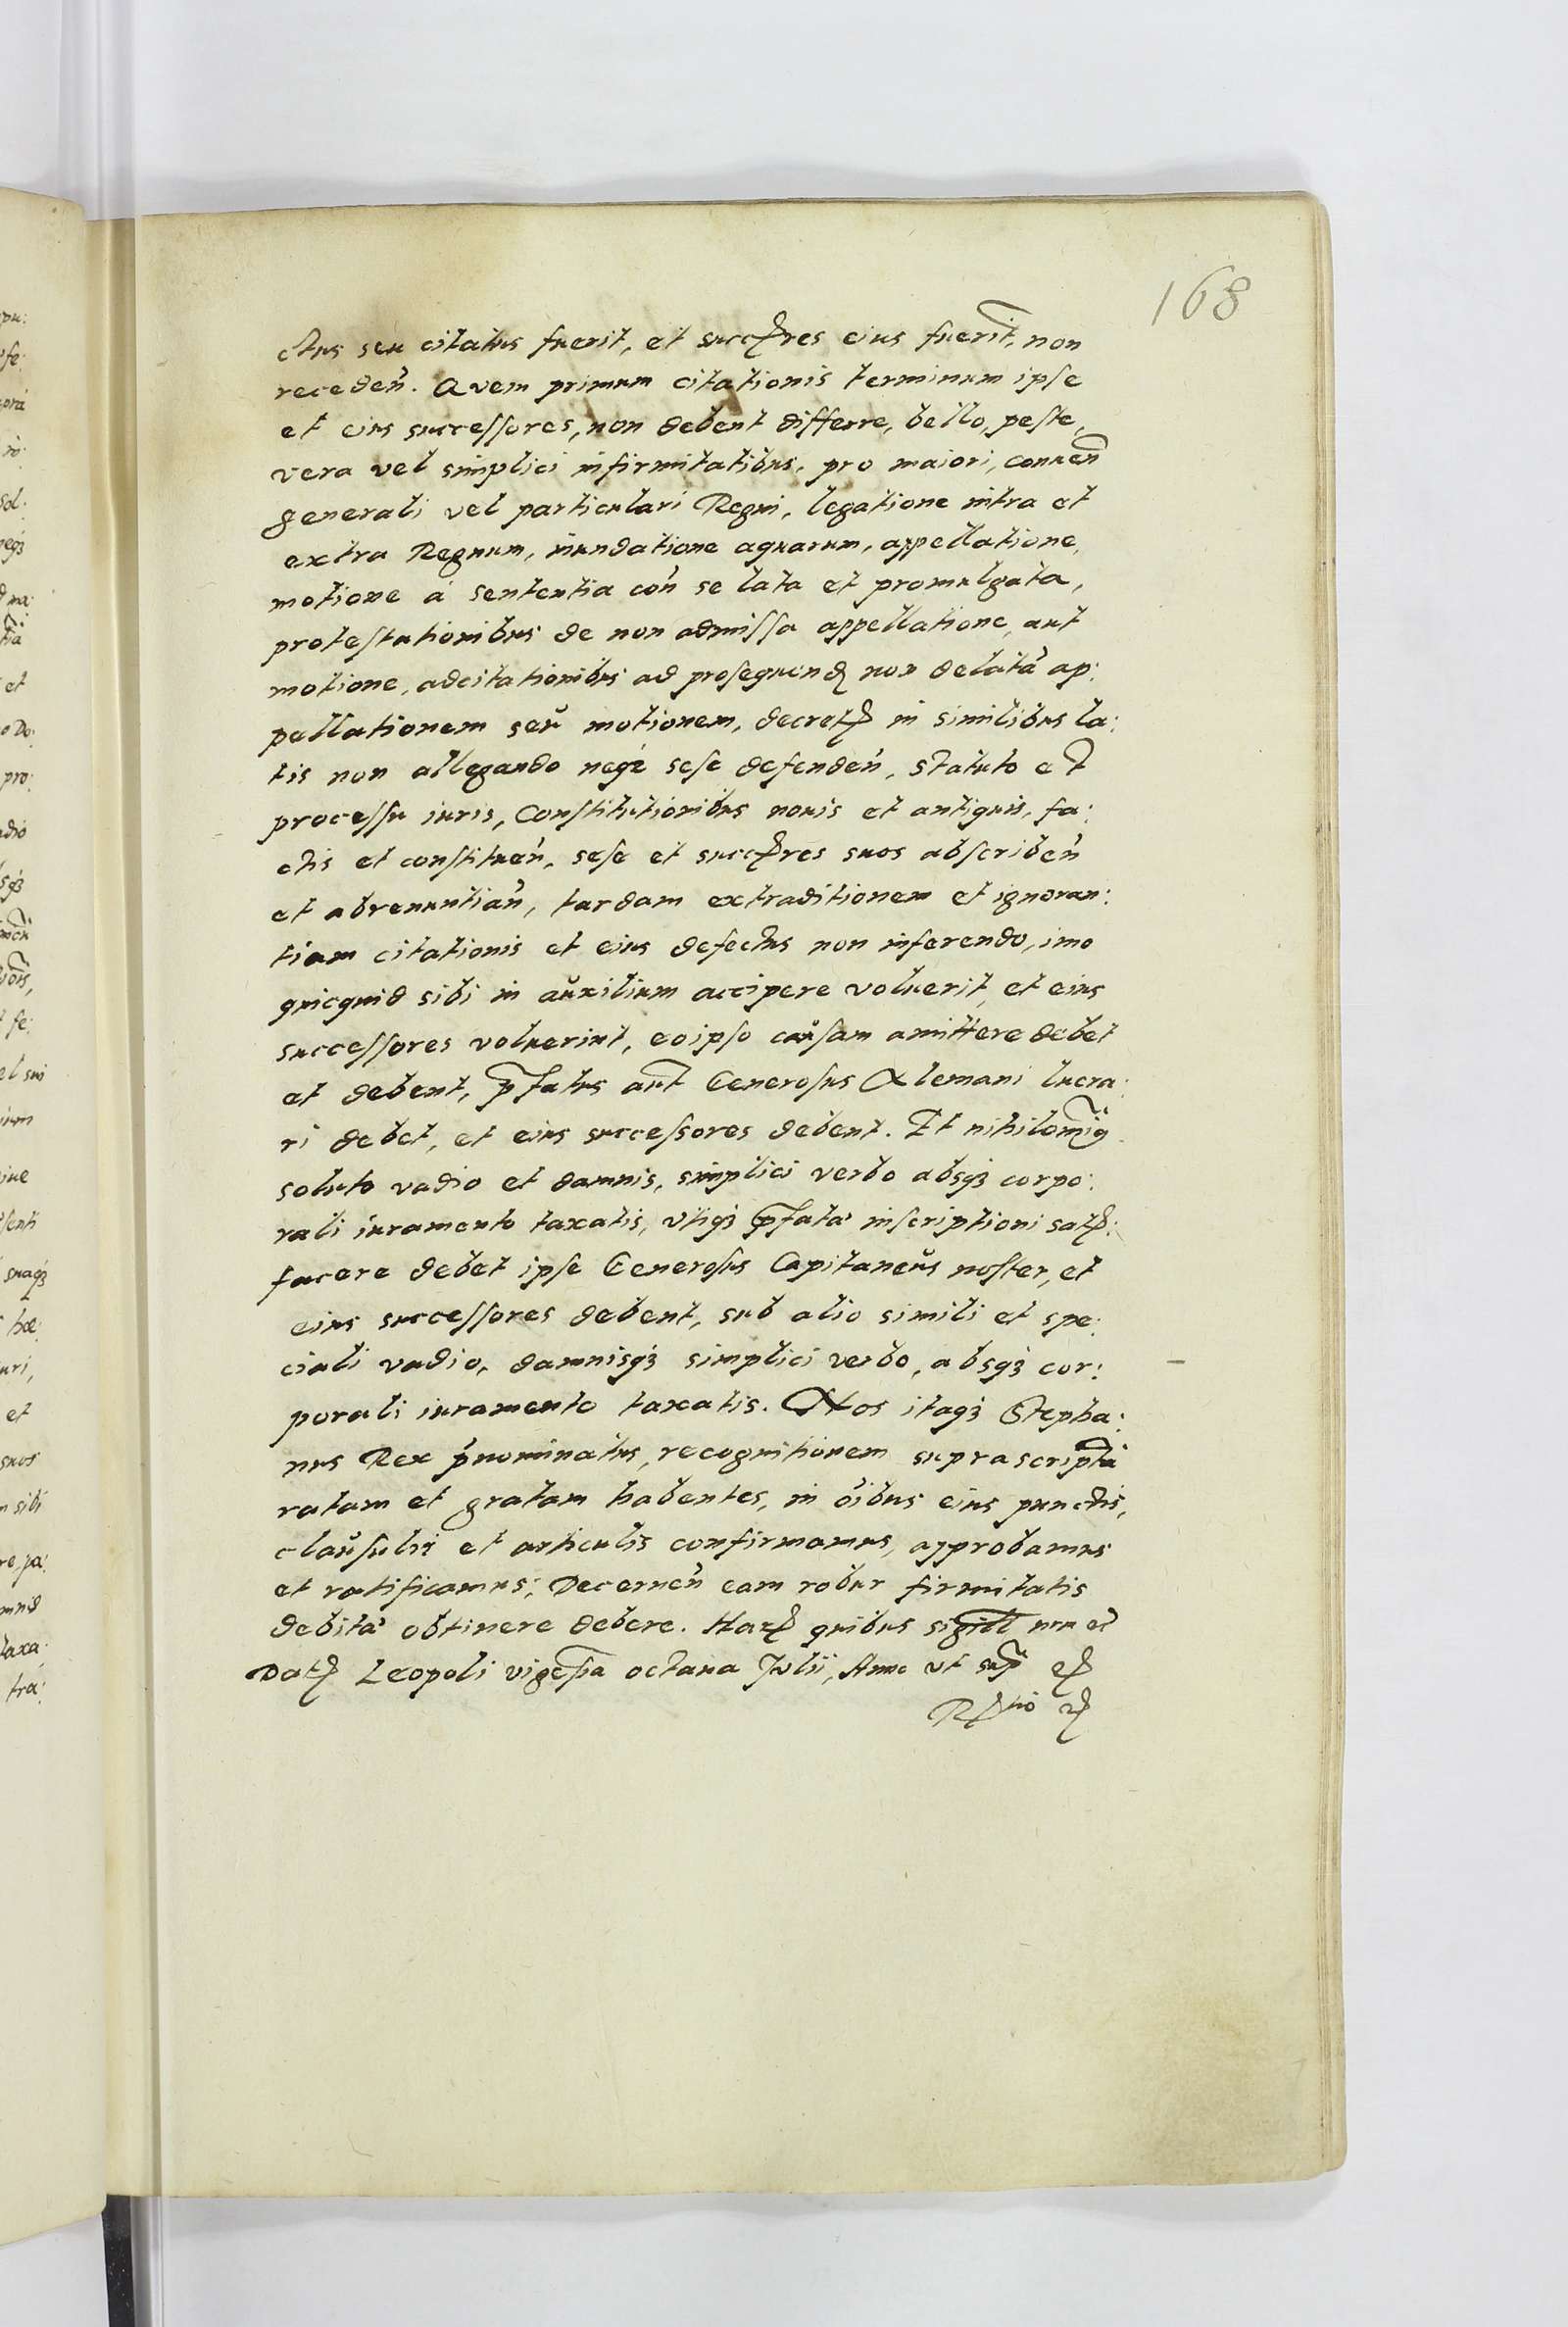 168
ctus seu citatus fuerit, et succres eius fuerit, non
receden. Quem primum citationis terminum ipse
et eius successores, non debent differre, bello, peste,
vera vel simplici infirmitatibus, pro maiori, conuen
generali vel particulari Regni, legatione intra et
extra Regnum, inundatione aquarum, appellatione,
motione á sententia con se lata et promulgata,
protestationibus de non admissa appellatione, aut
motione, adcitationibus ad prosequend non delatã ap:
pellationem seu motionem, decret in similibus la:
tis non allegando neqz sese defenden, statuto et
processu iuris, Constitutionibus nouis et antiquis, fa:
ctis et constituen, sese et succres suos abscriben
et abrenuntian, tardam extraditionem et ignoran:
tiam citationis et eius defectus non inferendo, imo
quicquid sibi in auxilium accipere voluerit, et eius
successores voluerint, eoipso causam amittere debet
et debent, pfatus aut Generosus Alemani lucra:
ri debet, et eius successores debent. Et nihilominq
soluto vadio et damnis, simplici verbo absqz corpo:
rali iuramento taxatis, vtiqz pfatã inscriptioni sat:
facere debet ipse Generosus Capitaneus noster, et
eius successores debent, sub alio simili et spe:
ciali vadio, damnisqz simplici verbo, absqz cor:
porali iuramento taxatis. Nos itaqz Stepha:
nus Rex pnominatus, recognitionem suprascriptã
ratam et gratam habentes, in oibus eius punctis,
clausulis et articulis confirmamus, approbamus
et ratificamus; Decernen eam robur firmitatis
debitã obtinere debere. Har quibus sigill nru et
Dat Leopoli vigesia octaua Julii, Anno vt sup